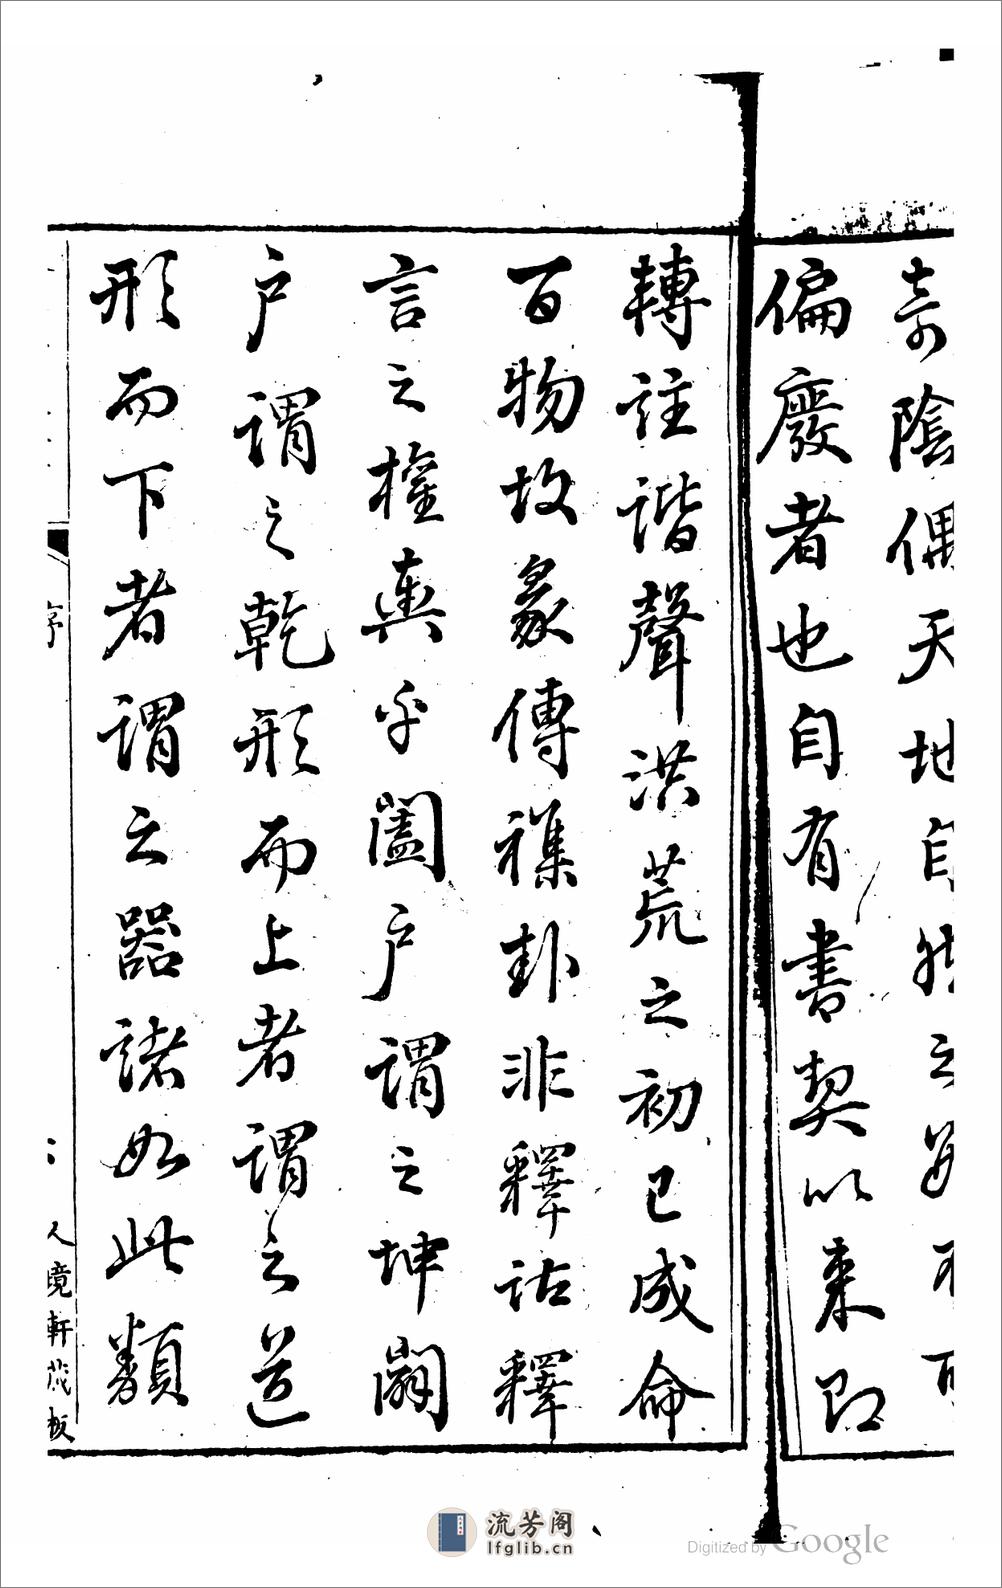 奇陰偶天地自然之
偏廢者也自有書契以來即
轉註諧聲洪荒之初已成命
百物故彖傳襍卦非釋詁釋
言之權輿乎闔户謂之坤闢
户謂之乾形而上者謂之道
形而下者謂之器諸如此類
序
人境軒藏板
流芳阁
lfglib.cn
Digitized by Google